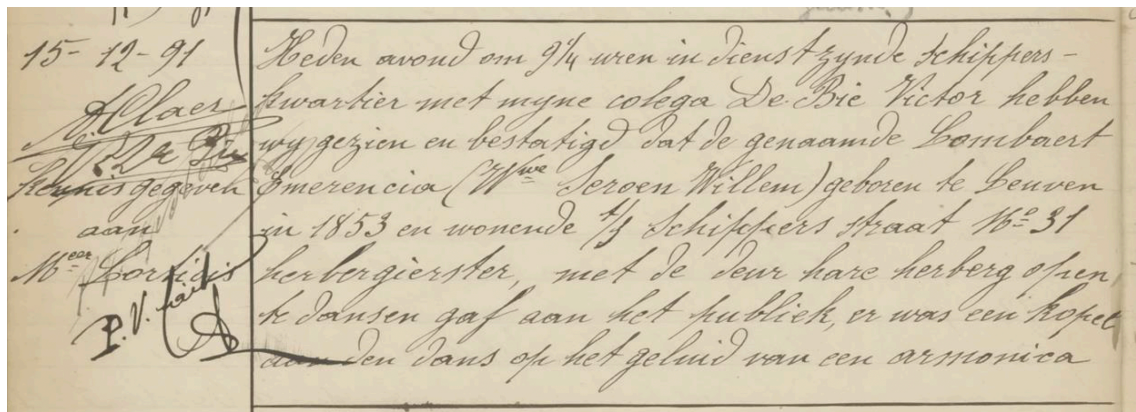 15-12-91
A. Claes
V. De Bie
Kennis gegeven
aan
Meer
P.V.
Heden avond om 9 1/4 uren in dienst zynde schippers-
kwartier met myne colega De Bie Victor hebben
wy gezien en bestatigd dat de genaamde Lombaert
Emerencia (Wwe Seroen Willem) geboren te Leuven
in 1853 en wonende t/s Schippers straat No 31
herbergierster, met de deur hare herberg open
te dansen gaf aan het publiek, er was een kopel
aan den dans op het geluid van een armonica